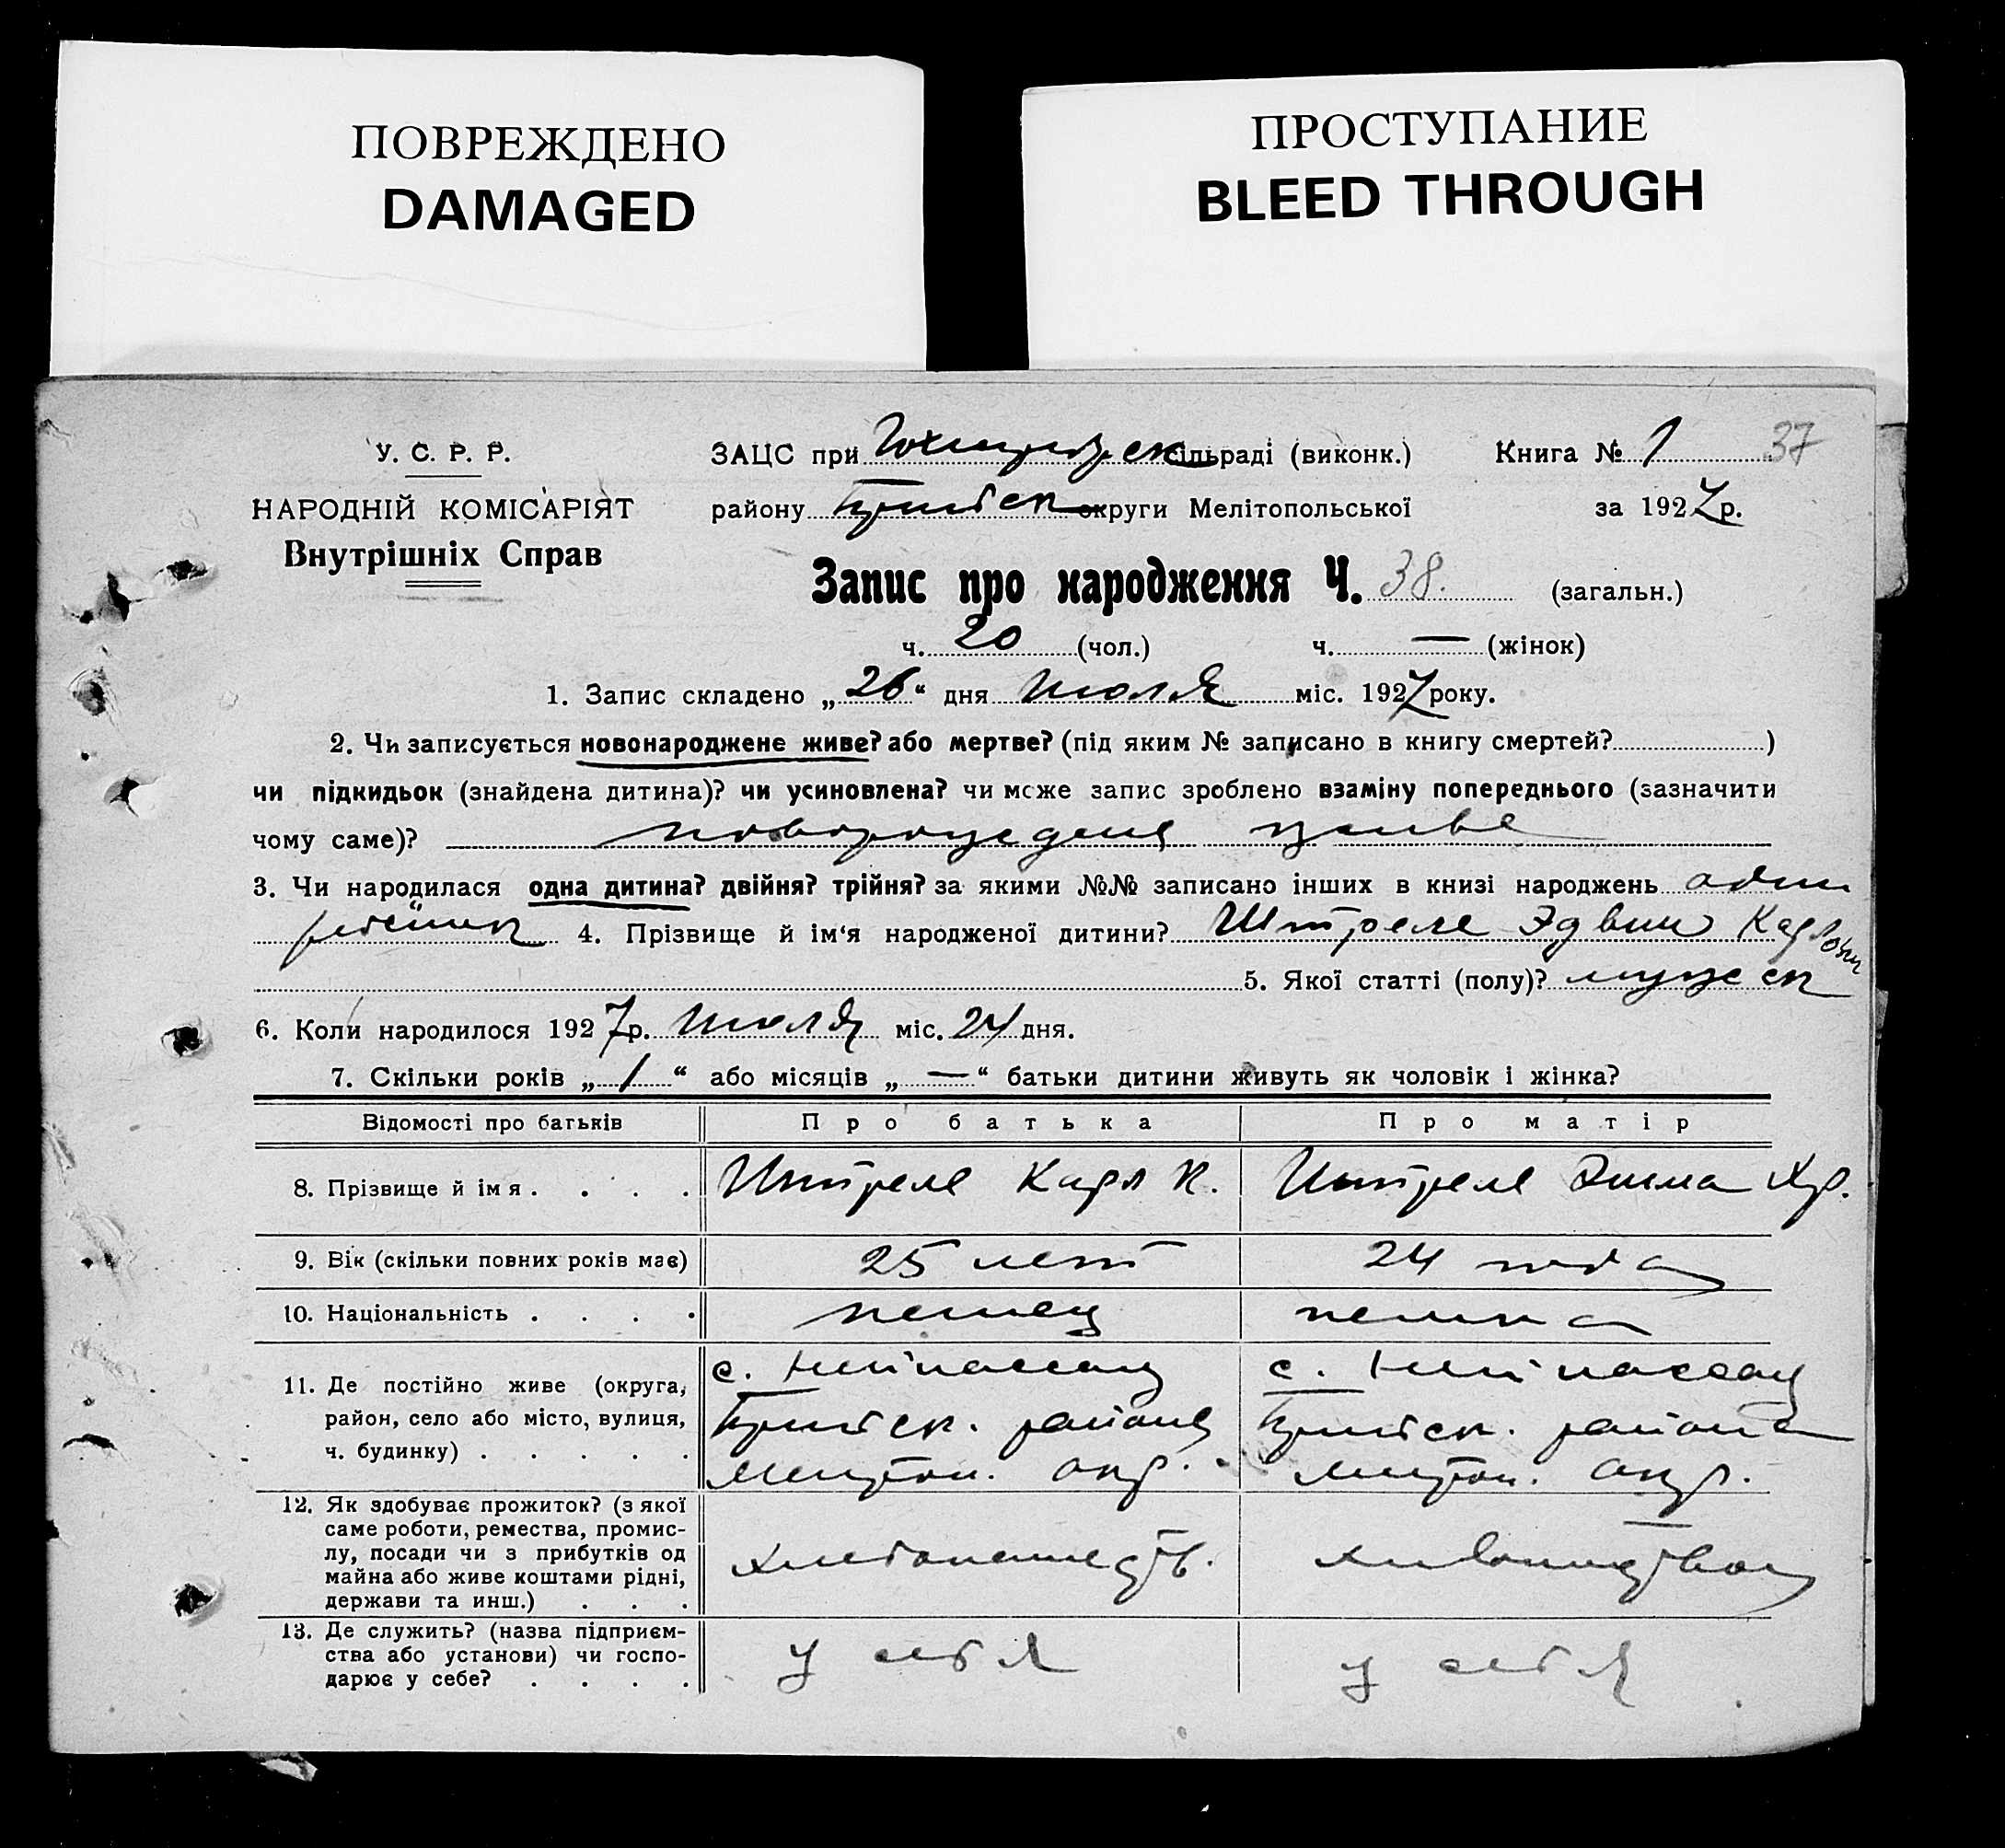 ПОВРЕЖДЕНО
DAMAGED
ПРОСТУПАНИЕ
BLEED THROUGH
У. С. Р. Р.
НАРОДНІЙ КОМІСАРІЯТ
Внутрішніх Справ
ЗАЦС при сільраді (виконк.) Книга № 1 37
району округи Мелітопольської за 1927 р.
Запис про народження Ч. 38. (загальн.)
ч. 20 (чол.) ч. — (жінок)
1. Запис складено „26“ дня Июля міс. 1927 року.
2. Чи записується новонароджене живе? або мертве? (під яким № записано в книгу смертей? )
чи підкидьок (знайдена дитина)? чи усиновлена? чи може запис зроблено взаміну попереднього (зазначити
чому саме)? живе
3. Чи народилася одна дитина? двійня? трійня? за якими №№ записано інших в книзі народжень один
4. Прізвище й ім‘я народженої дитини? Штреле Эдвин Карлович
5. Якої статті (полу)? мужск
6. Коли народилося 1927 р. Июля міс. 24 дня.
7. Скільки років „ 1 “ або місяців „ — “ батьки дитини живуть як чоловік і жінка?
Відомості про батьків Про батька Про матір
8. Прізвище й імя . . . . Штреле Карл К. Штреле Эмма Хр.
9. Вік (скільки повних років має) 25 лет 24 года
10. Національність . . . . немец немка
11. Де постійно живе (округа, район, село або місто, вулиця, ч. будинку) . . . . .
с. Нейнассау района Мелитоп. окр.
с. Нейнассау района Мелитоп. окр.
12. Як здобуває прожиток? (з якої
саме роботи, ремества, промис-
лу, посади чи з прибутків од
майна або живе коштами рідні,
держави та инш.) . . .
13. Де служить? (назва підприєм-
ства або установи) чи госпо-
дарює у себе? . . . .
у себя у себя